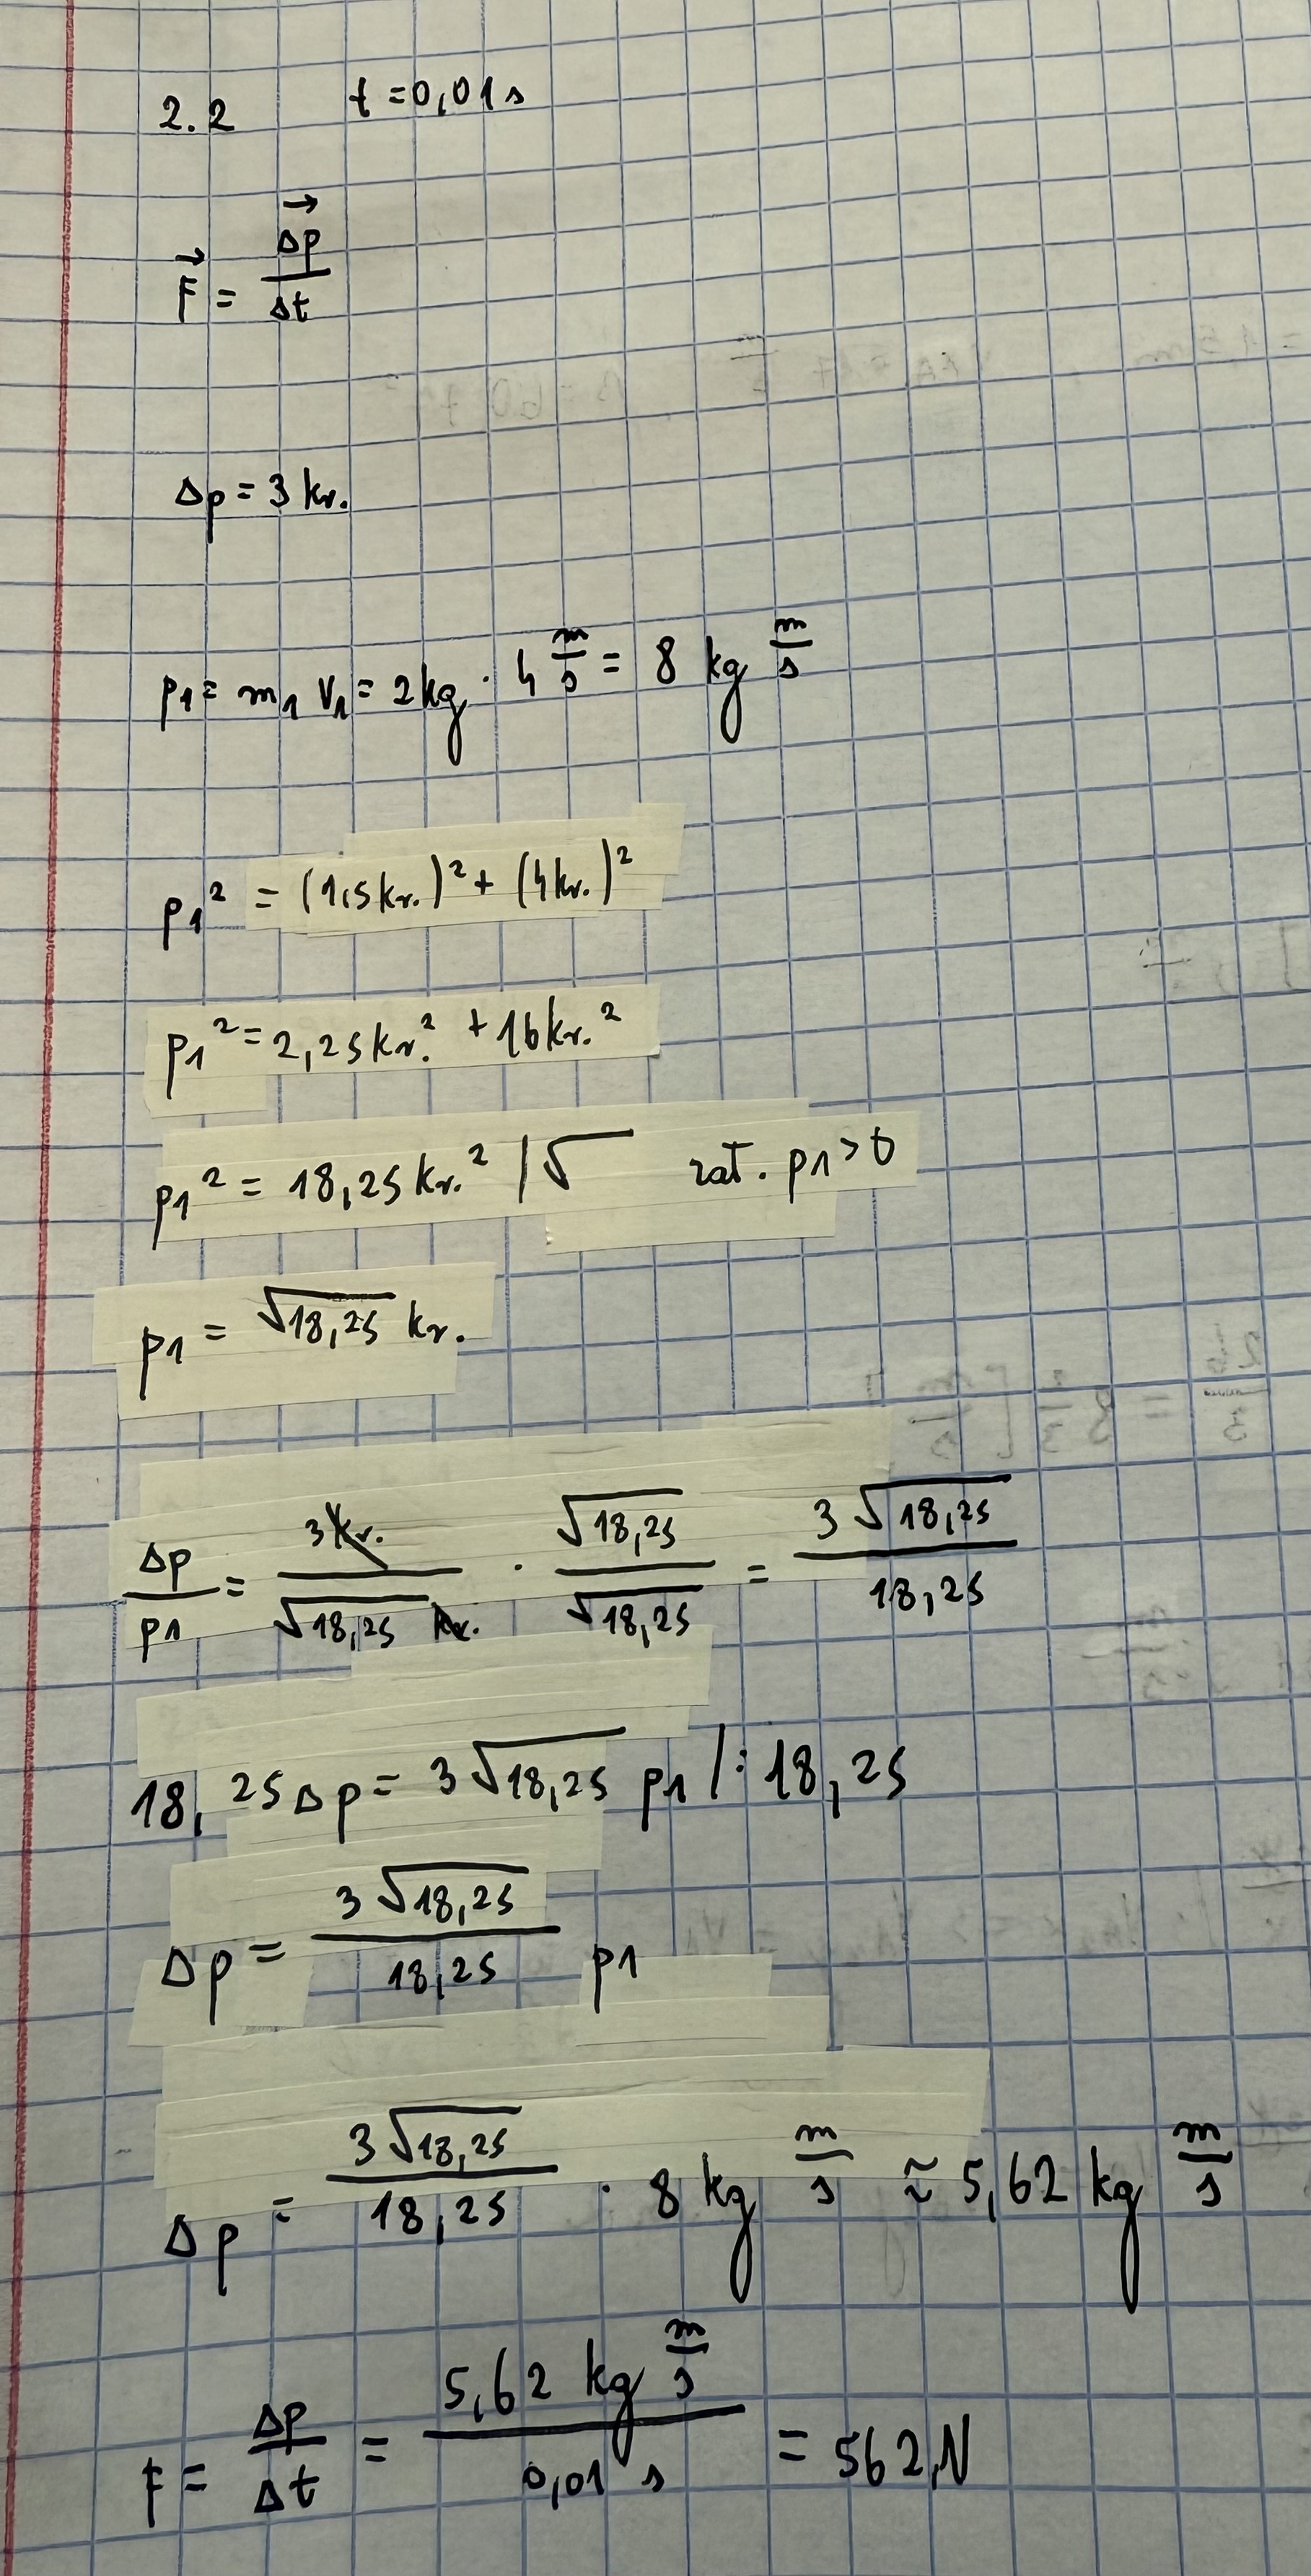 2.2 t = 0,01 s
F⃗ = Δp⃗ / Δt
Δp = 3 kr.
p1 = m1 v1 = 2 kg · 4 m/s = 8 kg m/s
p1² = (1,5 kr.)² + (4 kr.)²
p1² = 2,25 kr.² + 16 kr.²
p1² = 18,25 kr.² /√ zał. p1 > 0
p1 = √18,25 kr.
Δp / p1 = 3 kr. / √18,25 kr. · √18,25 / √18,25 = 3 √18,25 / 18,25
18,25 Δp = 3 √18,25 p1 /: 18,25
Δp = 3 √18,25 / 18,25 p1
Δp = 3 √18,25 / 18,25 · 8 kg m/s ≈ 5,62 kg m/s
F = Δp / Δt = 5,62 kg m/s / 0,01 s = 562 N